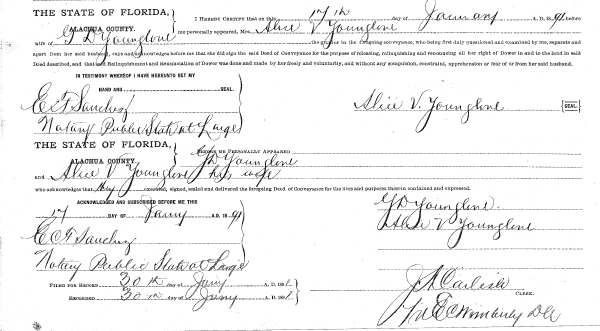 THE STATE OF FLORIDA,
ALACHUA COUNTY.
I HEREBY CERTIFY that on this 17th day of January A. D. 1891 before
me personally appeared, Mrs. Alice V Younglove
wife of G D Younglove the grantor in the foregoing conveyance, who being by me duly questioned and examined by me, separate and
apart from her said husband, before me that she did sign the said Deed of Conveyance for the purpose of releasing, relinquishing and renouncing all her right of Dower in and to the land in said
Deed described, and that said Relinquishment and Renunciation of Dower was done and made by her freely and voluntarily, and without any compulsion, constraint, apprehension or fear of or from her said husband.
IN TESTIMONY WHEREOF I HAVE HEREUNTO SET MY
HAND AND SEAL.
E F Sanchez
Notary Public State at Large
Alice V. Younglove SEAL
THE STATE OF FLORIDA,
ALACHUA COUNTY.
BEFORE ME PERSONALLY APPEARED G D Younglove
and Alice V Younglove his wife
who acknowledges that they executed, signed, sealed and delivered the foregoing Deed of Conveyance for the uses and purposes therein contained and expressed.
ACKNOWLEDGED AND SUBSCRIBED BEFORE ME THIS
17 DAY OF Jany A.D. 1891
G D Younglove
Alice V Younglove
E F Sanchez
Notary Public State at Large
FILED FOR RECORD 30th day of Jany A. D. 1891.
RECORDED 30th day of Jany A. D. 1891.
J A Carlisle
CLERK.
Wimberly DC